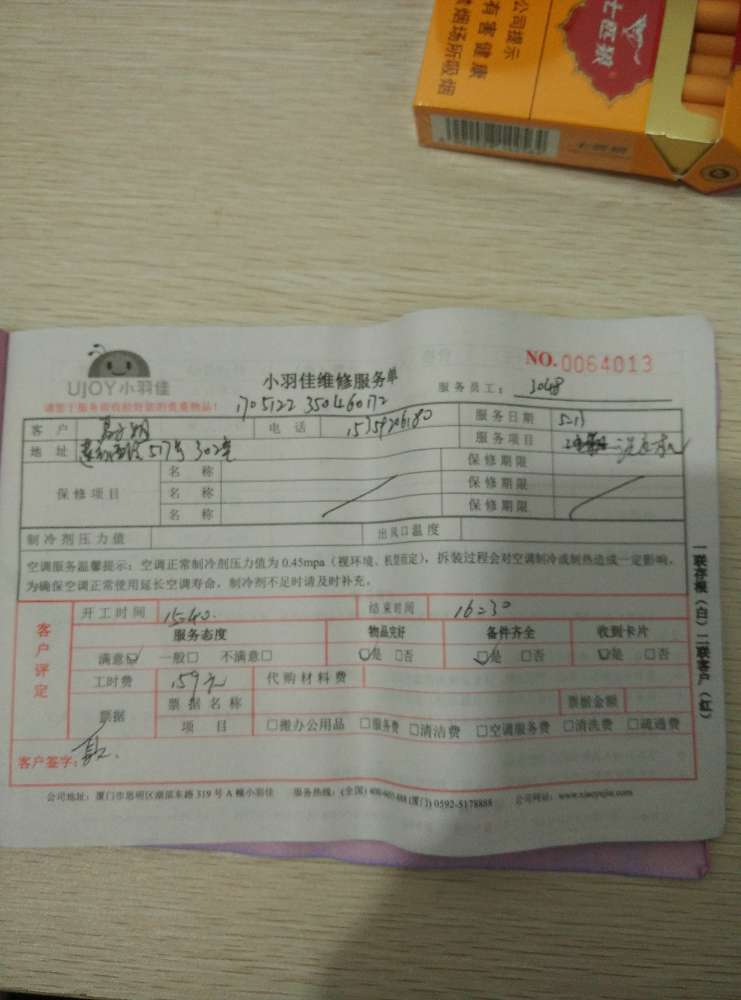 公司提示
有害健康
禁烟场所吸烟
七匹狼
NO.0064013
UJOY小羽佳
小羽佳维修服务单
服务员工：
1705122 350460172
客户
电话 15359206180
服务日期 5-13
地址 517号302室
服务项目
保修项目
名称 保修期限
名称 保修期限
名称 保修期限
制冷剂压力值 出风口温度
空调服务温馨提示：空调正常制冷剂压力值为 0.45mpa（视环境、机型而定），拆装过程会对空调制冷或制热造成一定影响，
为确保空调正常使用延长空调寿命，制冷剂不足时请及时补充。
客户评定
开工时间 15:40 结束时间 16:30
服务态度 物品完好 备件齐全 收到卡片
满意☑ 一般□ 不满意□ ☑是 □否 ☑是 □否 ☑是 □否
工时费 159元 代购材料费
票据 票据名称 票据金额
项目 □搬办公用品 □服务费 □清洁费 □空调服务费 □清洗费 □疏通费
客户签字：
一联存根（白）二联客户（红）
公司地址：厦门市思明区 319号A幢小羽佳 服务热线：(全国) (厦门) 0592-5178888 公司网站：www.xiaoyujia.com